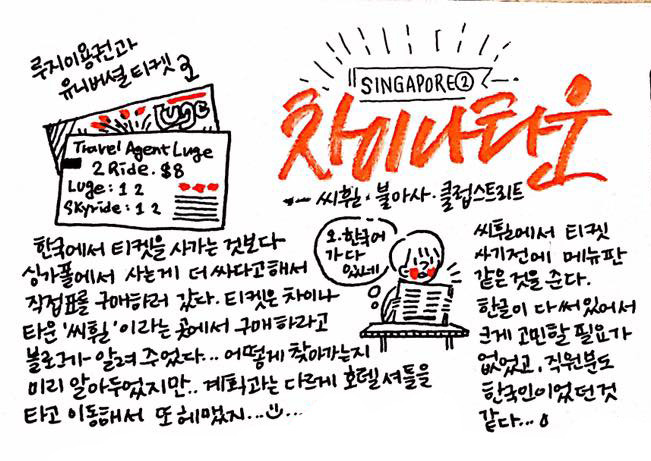 루지이용권과
유니버셜티켓
luge
Travel Agent Luge
2 Ride. $8
Luge: 1 2
Skyride: 1 2
SINGAPORE②
차이나타운
씨휠·불아사·클럽스트리트
한국에서 티켓을 사가는 것보다
싱가폴에서 사는게 더 싸다고해서
직접표를 구매하러 갔다. 티켓은 차이나
타운 '씨휠'이라는 곳에서 구매하라고
블로그가 알려 주었다... 어떻게 찾아가는지
미리 알아두었지만.. 계획과는 다르게 호텔셔틀을
타고 이동해서 또 헤맸지...
오. 한국어
가 다
있네
씨휠에서 티켓
사기전에 메뉴판
같은것을 준다.
한글이 다 써있어서
크게 고민할 필요가
없었고, 직원분도
한국인이었던것
같다...